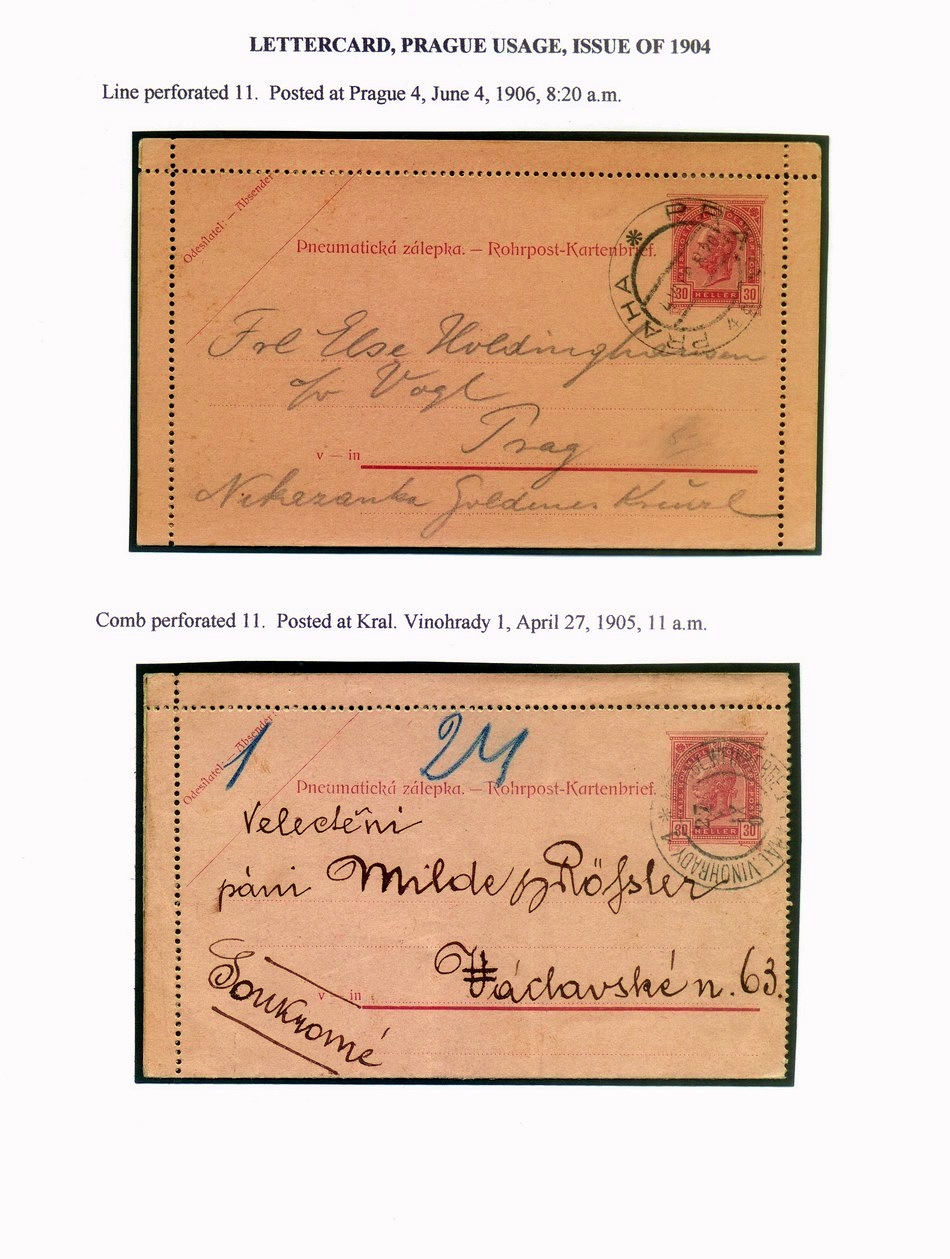 LETTERCARD, PRAGUE USAGE, ISSUE OF 1904
Line perforated 11. Posted at Prague 4, June 4, 1906, 8:20 a.m.
Odesílatel: — Absender:
Pneumatická zálepka. — Rohrpost-Kartenbrief.
30 HELLER 30
PRAHA
4
Frl Else Holdinghausen
b/v Vogl
v — in Prag
Nekazanka Goldenes Kreuzl
Comb perforated 11. Posted at Kral. Vinohrady 1, April 27, 1905, 11 a.m.
Odesílatel: — Absender:
1 24
Pneumatická zálepka. — Rohrpost-Kartenbrief.
30 HELLER 30
KRÁL. VINOHRADY 1
27
Velectění
páni Milde & Rößler
Václavské n. 63.
v — in
Soukromé